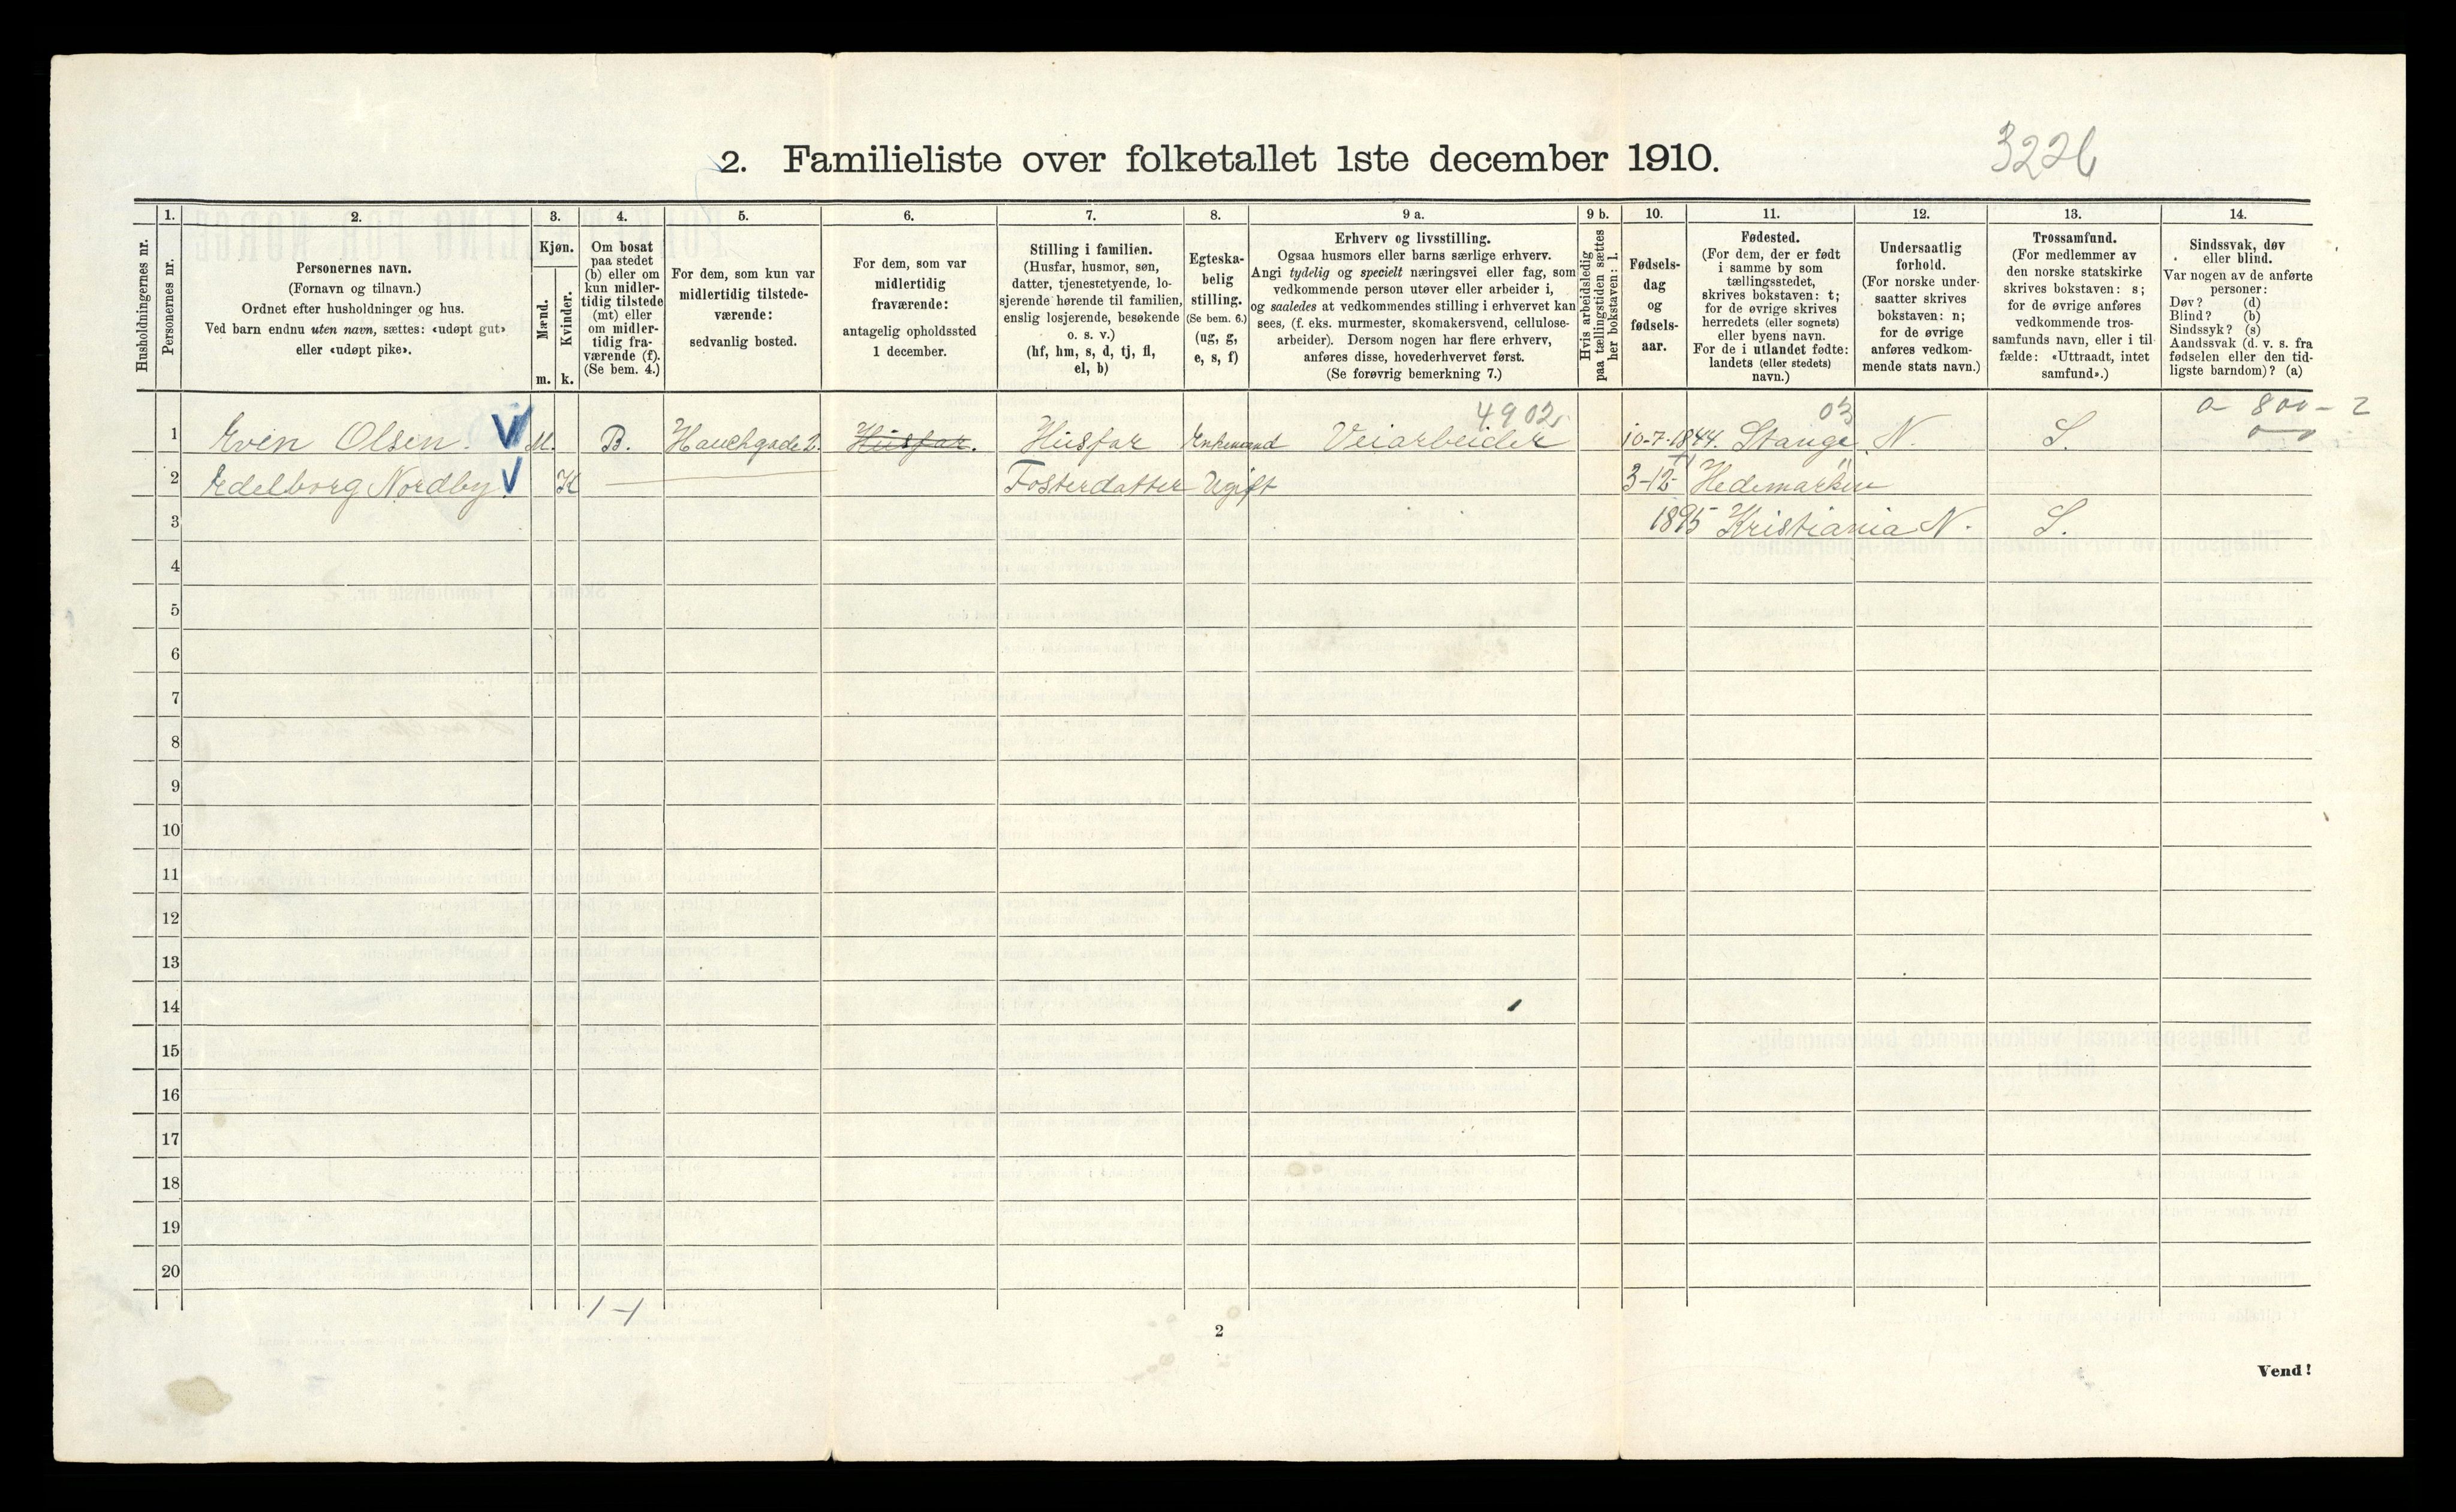 3226
2. Familieliste over folketallet 1ste december 1910.
Husholdningernes nr.
1.
Personernes nr.
2.
Personernes navn.
(Fornavn og tilnavn.)
Ordnet efter husholdninger og hus.
Ved barn endnu uten navn, sættes: «udøpt gut»
eller «udøpt pike».
3.
Kjøn.
Mænd.
Kvinder.
m. k.
4.
Om bosat
paa stedet
(b) eller om
kun midler-
tidig tilstede
(mt) eller
om midler-
tidig fra-
værende (f).
(Se bem. 4.)
5.
For dem, som kun var
midlertidig tilstede-
værende:
sedvanlig bosted.
6.
For dem, som var
midlertidig
fraværende:
antagelig opholdssted
1 december.
7.
Stilling i familien.
(Husfar, husmor, søn,
datter, tjenestetyende, lo-
sjerende hørende til familien,
enslig losjerende, besøkende
o. s. v.)
(hf, hm, s, d, tj, fl,
el, b)
8.
Egteska-
belig
stilling.
(Se bem. 6.)
(ug, g,
e, s, f)
9 a.
Erhverv og livsstilling.
Ogsaa husmors eller barns særlige erhverv.
Angi tydelig og specielt næringsvei eller fag, som
vedkommende person utøver eller arbeider i,
og saaledes at vedkommendes stilling i erhvervet kan
sees, (f. eks. murmester, skomakersvend, cellulose-
arbeider). Dersom nogen har flere erhverv,
anføres disse, hovederhvervet først.
(Se forøvrig bemerkning 7.)
9 b.
Hvis arbeidsledig
paa tællingstiden sættes
her bokstaven: l.
10.
Fødsels-
dag
og
fødsels-
aar.
11.
Fødested.
(For dem, der er født
i samme by som
tællingsstedet,
skrives bokstaven: t;
for de øvrige skrives
herredets (eller sognets)
eller byens navn.
For de i utlandet fødte:
landets (eller stedets)
navn.)
12.
Undersaatlig
forhold.
(For norske under-
saatter skrives
bokstaven: n;
for de øvrige
anføres vedkom-
mende stats navn.)
13.
Trossamfund.
(For medlemmer av
den norske statskirke
skrives bokstaven: s;
for de øvrige anføres
vedkommende tros-
samfunds navn, eller i til-
fælde: «Uttraadt, intet
samfund».)
14.
Sindssvak, døv
eller blind.
Var nogen av de anførte
personer:
Døv? (d)
Blind? (b)
Sindssyk? (s)
Aandssvak (d. v. s. fra
fødselen eller den tid-
ligste barndom)? (a)
4902 03 0 - 800 - 2
1 Even Olsen. V M. B. Hauchgade 2. Husfar. Husfar Enkemand Veiarbeider 10-7-1844. Stange N. S.
2 Edelborg Nordby. V K Fosterdatter Ugift 3-12- Hedemarken
3 1895 Kristiania N. S.
4
5
6
7
8
9
10
11
12
13
14
15
16
17
18
19
20
1 - 1
2
Vend!